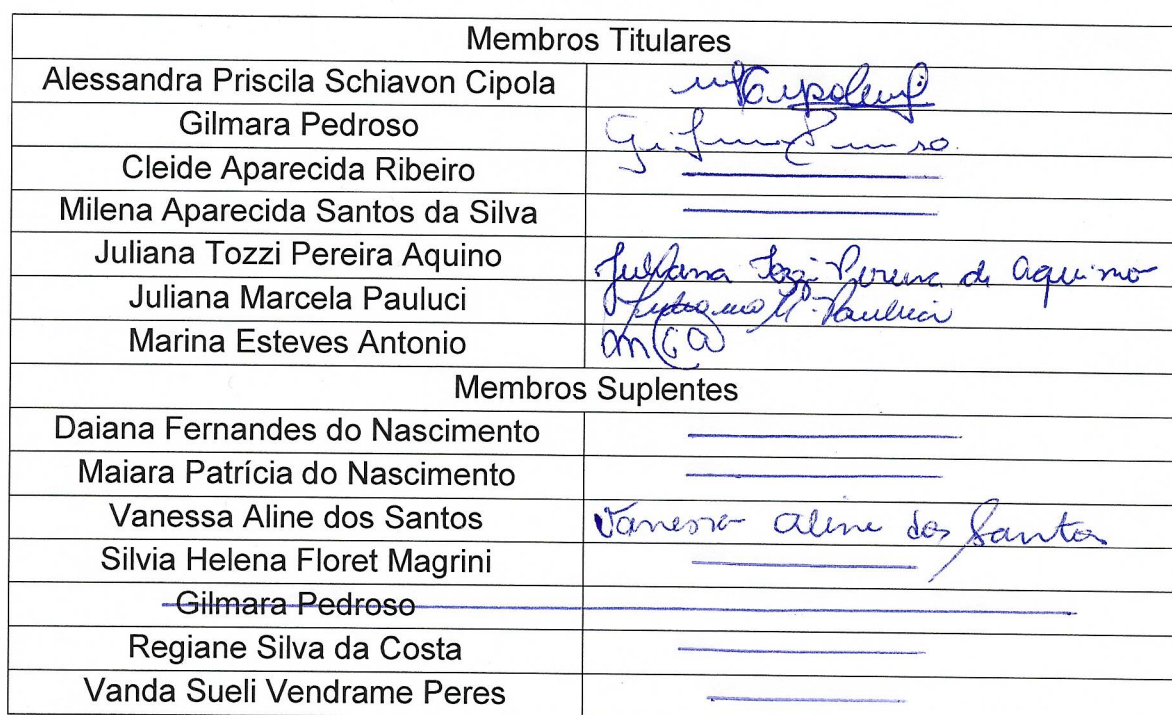 Membros Titulares
Alessandra Priscila Schiavon Cipola
Gilmara Pedroso
Cleide Aparecida Ribeiro
Milena Aparecida Santos da Silva
Juliana Tozzi Pereira Aquino Juliana Tozzi Pereira de Aquino
Juliana Marcela Pauluci Juliana M. Pauluci
Marina Esteves Antonio
Membros Suplentes
Daiana Fernandes do Nascimento
Maiara Patrícia do Nascimento
Vanessa Aline dos Santos Vanessa Aline dos Santos
Silvia Helena Floret Magrini
Gilmara Pedroso
Regiane Silva da Costa
Vanda Sueli Vendrame Peres